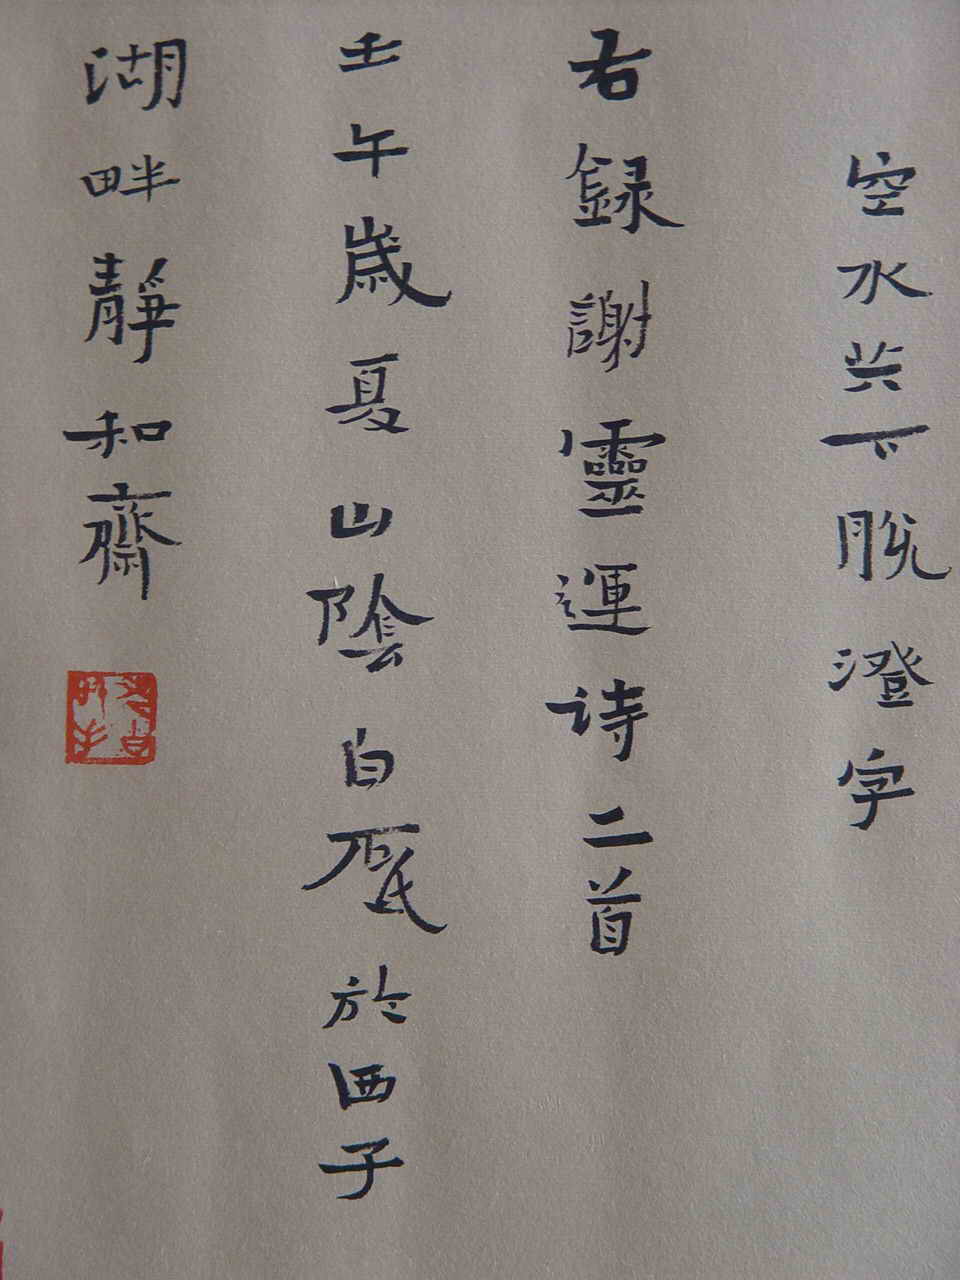 空水共下脱澄字
右録謝靈運诗二首
壬午歳夏山陰白砥於西子
湖畔靜和齋